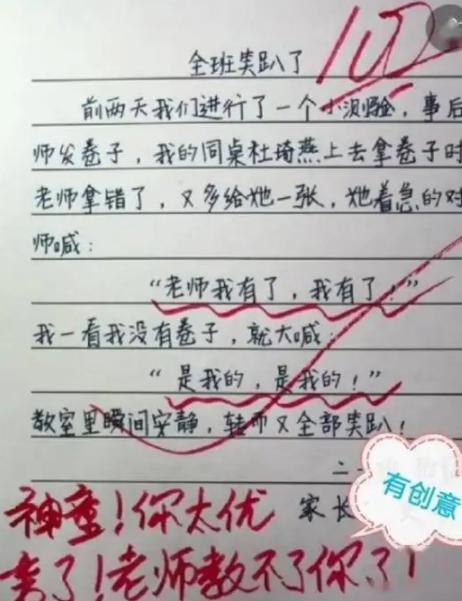 全班笑趴了
100
前两天我们进行了一个小测验，事后
师发卷子，我的同桌杜琦燕上去拿卷子时
老师拿错了，又多给她一张，她着急的对
师喊：
“老师我有了，我有了！”
我一看我没有卷子，就大喊：
“是我的，是我的！”
教室里瞬间安静，转而又全部笑趴！
二一
家长
有创意
神童！你太优
秀了！老师教不了你了！